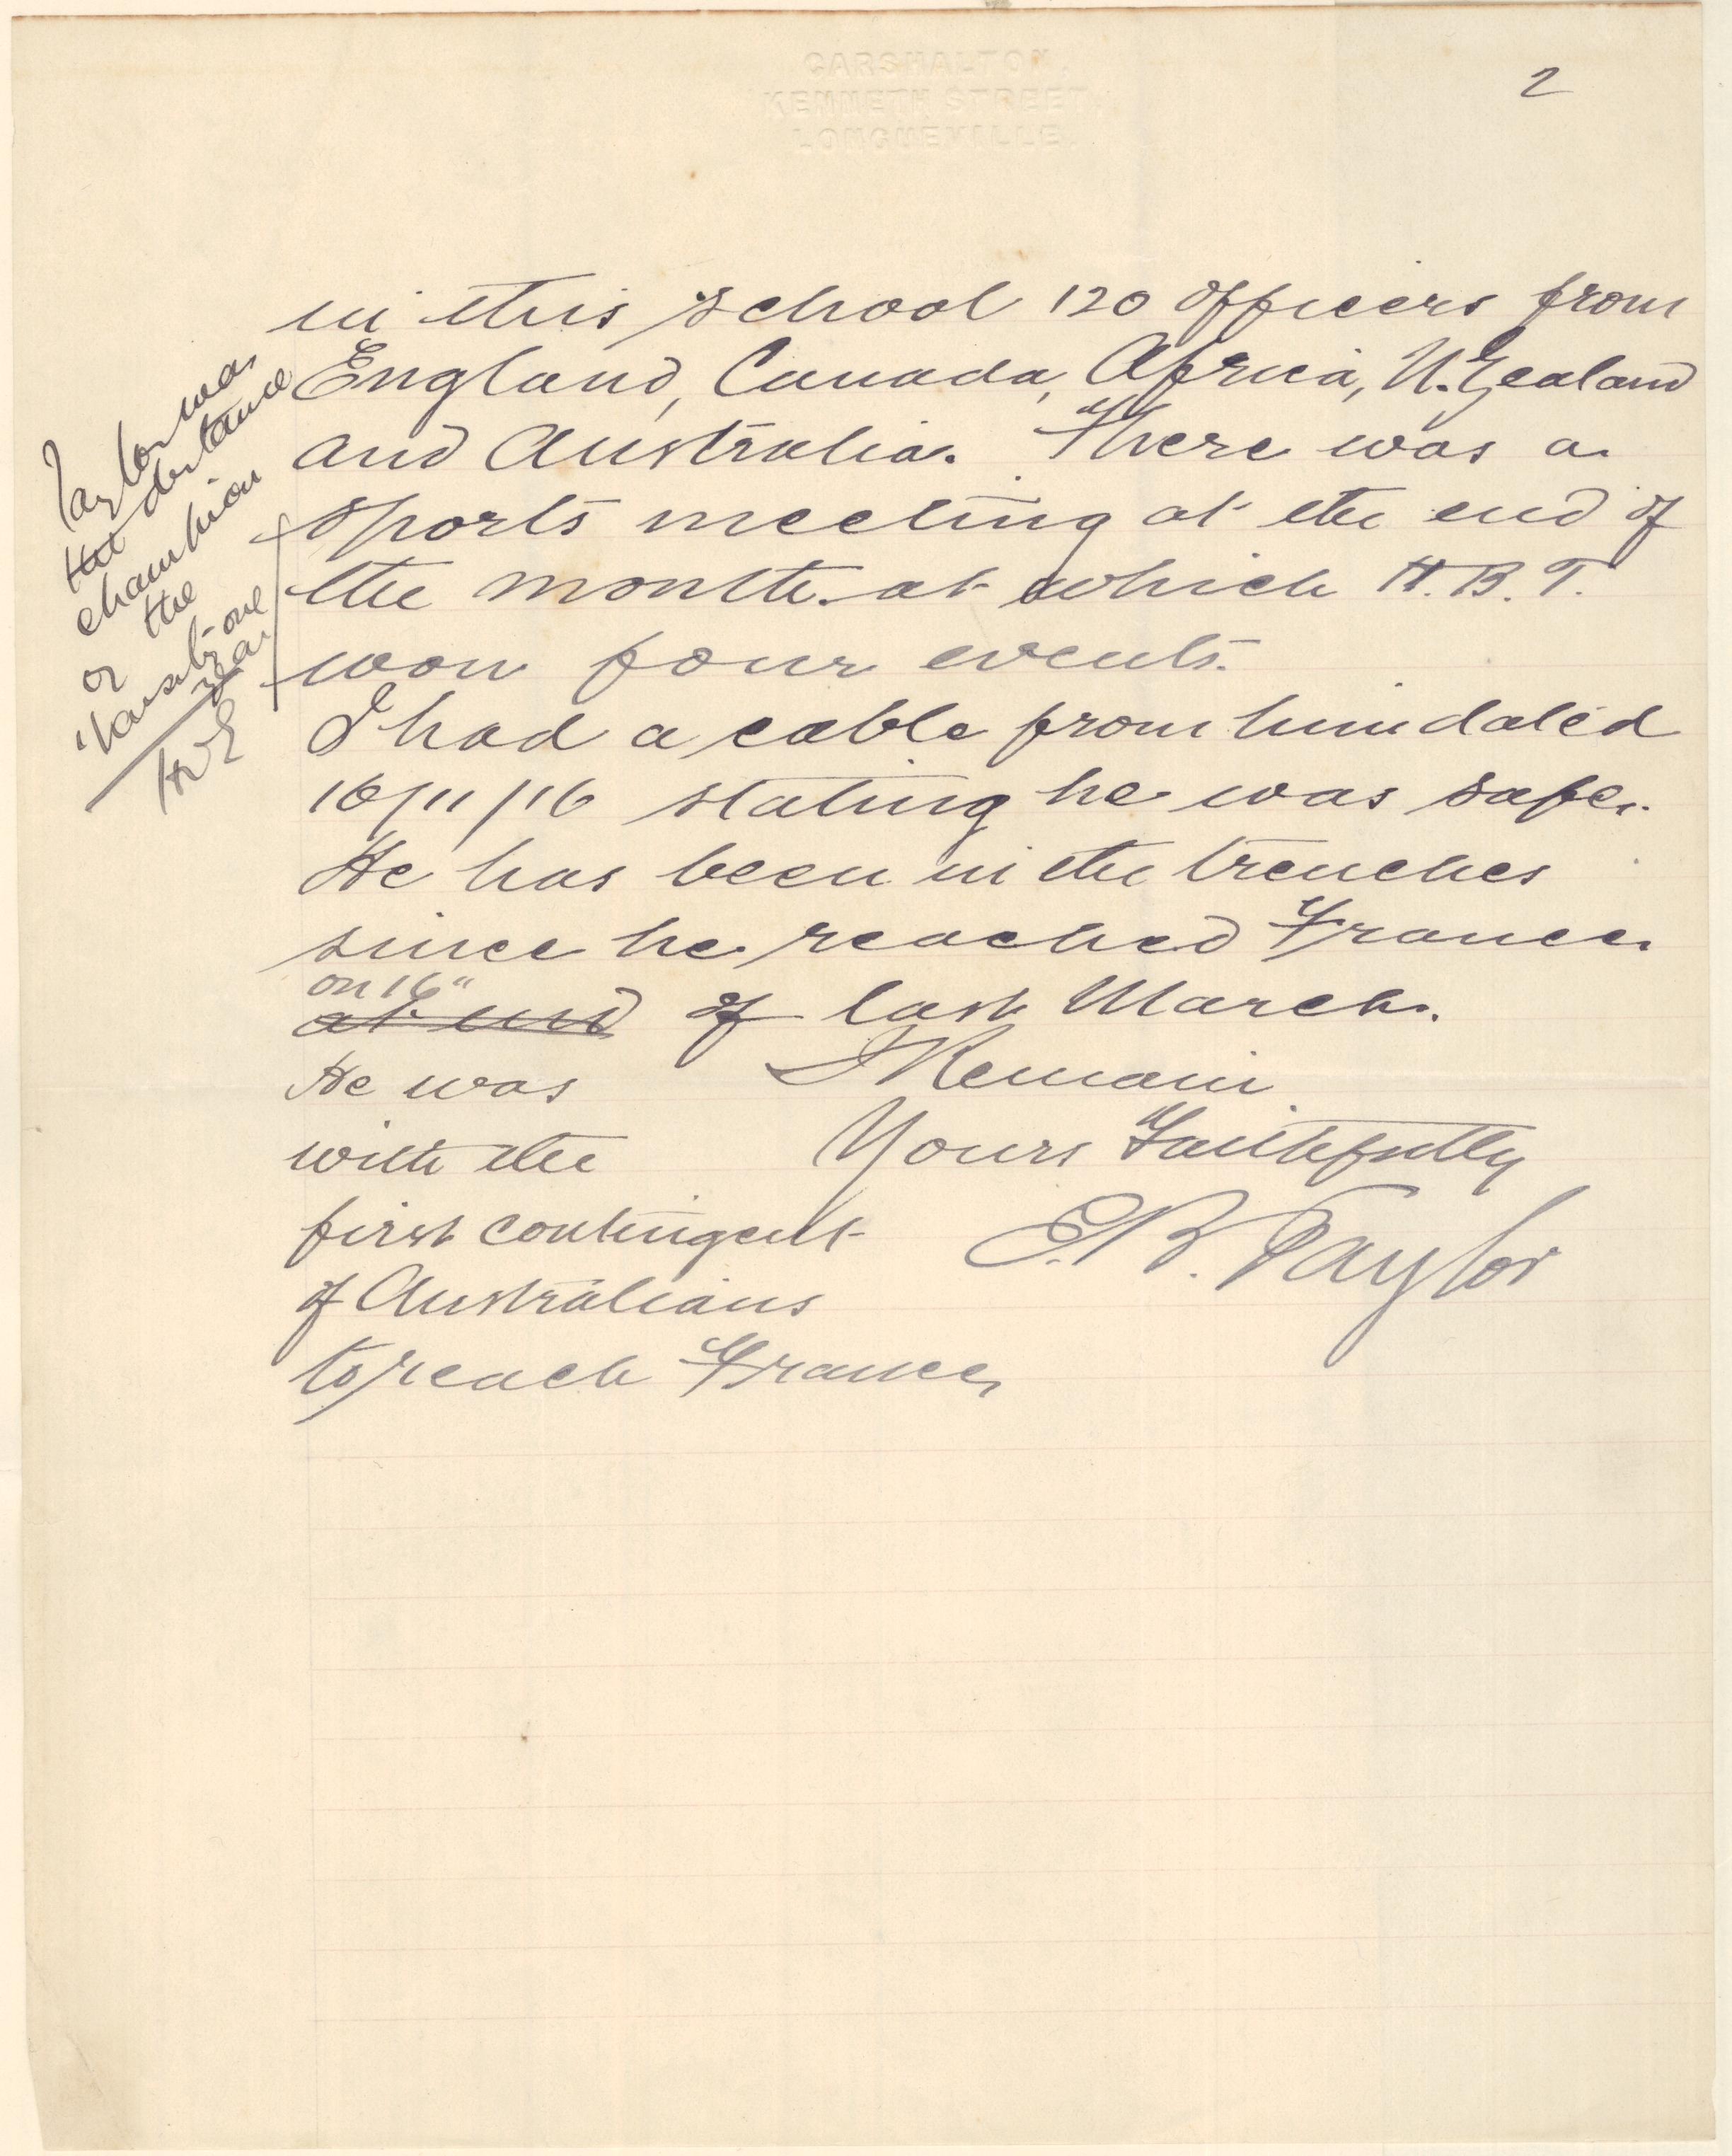 CARSHALTON,
KENNETH STREET,
LONGUEVILLE.
2
in this school 120 officers from
England, Canada, Africa, N. Zealand
and Australia. There was a
sports meeting at the end of
the month at which H.B.T.
won four events.
I had a cable from him dated
16/11/16 stating he was safe.
He has been in the trenches
since he reached France
on 16"
at end of last March.
I Remain
Yours Faithfully
E.B. Taylor
He was
with the
first contingent
of Australians
to reach France
Taylor was
the distance
champion
of the
'Varsity one
year